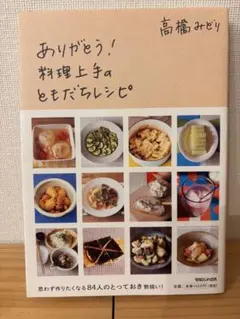 高橋みどり
ありがとう!
料理上手の
ともだちレシピ
思わず作りたくなる84人のとっておき勢揃い!
マガジンハウス